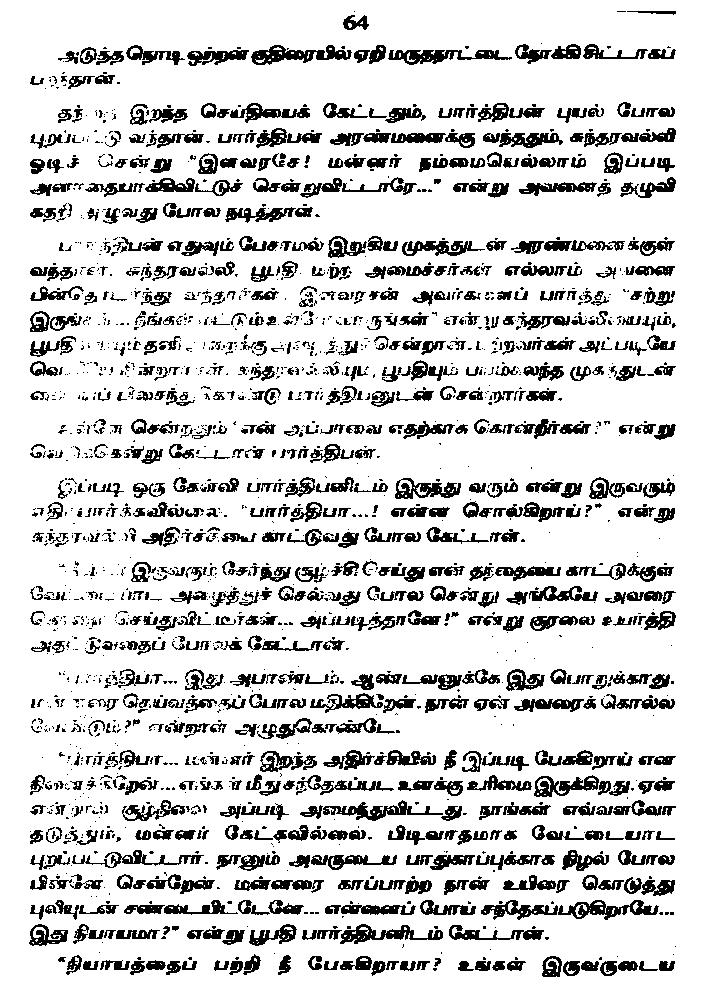 64
அடுத்த நொடி ஒற்றன் குதிரையில் ஏறி மருதநாட்டை நோக்கி சிட்டாகப்
பறந்தான்.
தந்தை இறந்த செய்தியைக் கேட்டதும், பார்த்திபன் புயல் போல
புறப்பட்டு வந்தான். பார்த்திபன் அரண்மனைக்கு வந்ததும், சுந்தரவல்லி
ஓடிச் சென்று "இளவரசே! மன்னர் நம்மையெல்லாம் இப்படி
அனாதையாக்கிவிட்டுச் சென்றுவிட்டாரே..." என்று அவனைத் தழுவி
கதறி அழுவது போல நடித்தான்.
பார்த்திபன் எதுவும் பேசாமல் இறுகிய முகத்துடன் அரண்மனைக்குள்
வந்தான். சுந்தரவல்லி, பூபதி மற்ற அமைச்சர்கள் எல்லாம் அவனை
பின்தொடர்ந்து வந்தார்கள். இளவரசன் அவர்களைப் பார்த்து "சற்று
இருங்கள்... நீங்கள் மட்டும் உள்ளே வாருங்கள்" என்று சுந்தரவல்லியையும்,
பூபதியையும் தனி அறைக்கு அழைத்துச் சென்றான். மற்றவர்கள் அப்படியே
நின்றார்கள். சுந்தரவல்லியும், பூபதியும் பயம்கலந்த முகத்துடன்
கையைப் பிசைந்து கொண்டு பார்த்திபனுடன் சென்றார்கள்.
உள்ளே சென்றதும் "என் அப்பாவை எதற்காக கொன்றீர்கள்?" என்று
வெடுக்கென்று கேட்டான் பார்த்திபன்.
இப்படி ஒரு கேள்வி பார்த்திபனிடம் இருந்து வரும் என்று இருவரும்
எதிர்பார்க்கவில்லை. "பார்த்திபா...! என்ன சொல்கிறாய்?" என்று
சுந்தரவல்லி அதிர்ச்சியை காட்டுவது போல கேட்டான்.
"நீங்கள் இருவரும் சேர்ந்து சூழ்ச்சி செய்து என் தந்தையை காட்டுக்குள்
வேட்டையாட அழைத்துச் செல்வது போல சென்று அங்கேயே அவரை
கொலை செய்துவிட்டீர்கள்... அப்படித்தானே!" என்று குரலை உயர்த்தி
அதட்டுவதைப் போலக் கேட்டான்.
"பார்த்திபா... இது அபாண்டம். ஆண்டவனுக்கே இது பொறுக்காது.
மன்னரை தெய்வத்தைப் போல மதிக்கிறேன். நான் ஏன் அவரைக் கொல்ல
வேண்டும்?" என்றான் அழுதுகொண்டே.
"பார்த்திபா... மன்னர் இறந்த அதிர்ச்சியில் நீ இப்படி பேசுகிறாய் என
நினைக்கிறேன்... எங்கள் மீது சந்தேகப்பட உனக்கு உரிமை இருக்கிறது. ஏன்
என்றால் சூழ்நிலை அப்படி அமைந்துவிட்டது. நாங்கள் எவ்வளவோ
தடுத்தும், மன்னர் கேட்கவில்லை. பிடிவாதமாக வேட்டையாட
புறப்பட்டுவிட்டார். நானும் அவருடைய பாதுகாப்புக்காக நிழல் போல
பின்னே சென்றேன். மன்னரை காப்பாற்ற நான் உயிரை கொடுத்து
புலியுடன் சண்டையிட்டேனே... என்னைப் போய் சந்தேகப்படுகிறாயே...
இது நியாயமா?" என்று பூபதி பார்த்திபனிடம் கேட்டான்.
"நியாயத்தைப் பற்றி நீ பேசுகிறாயா? உங்கள் இருவருடைய